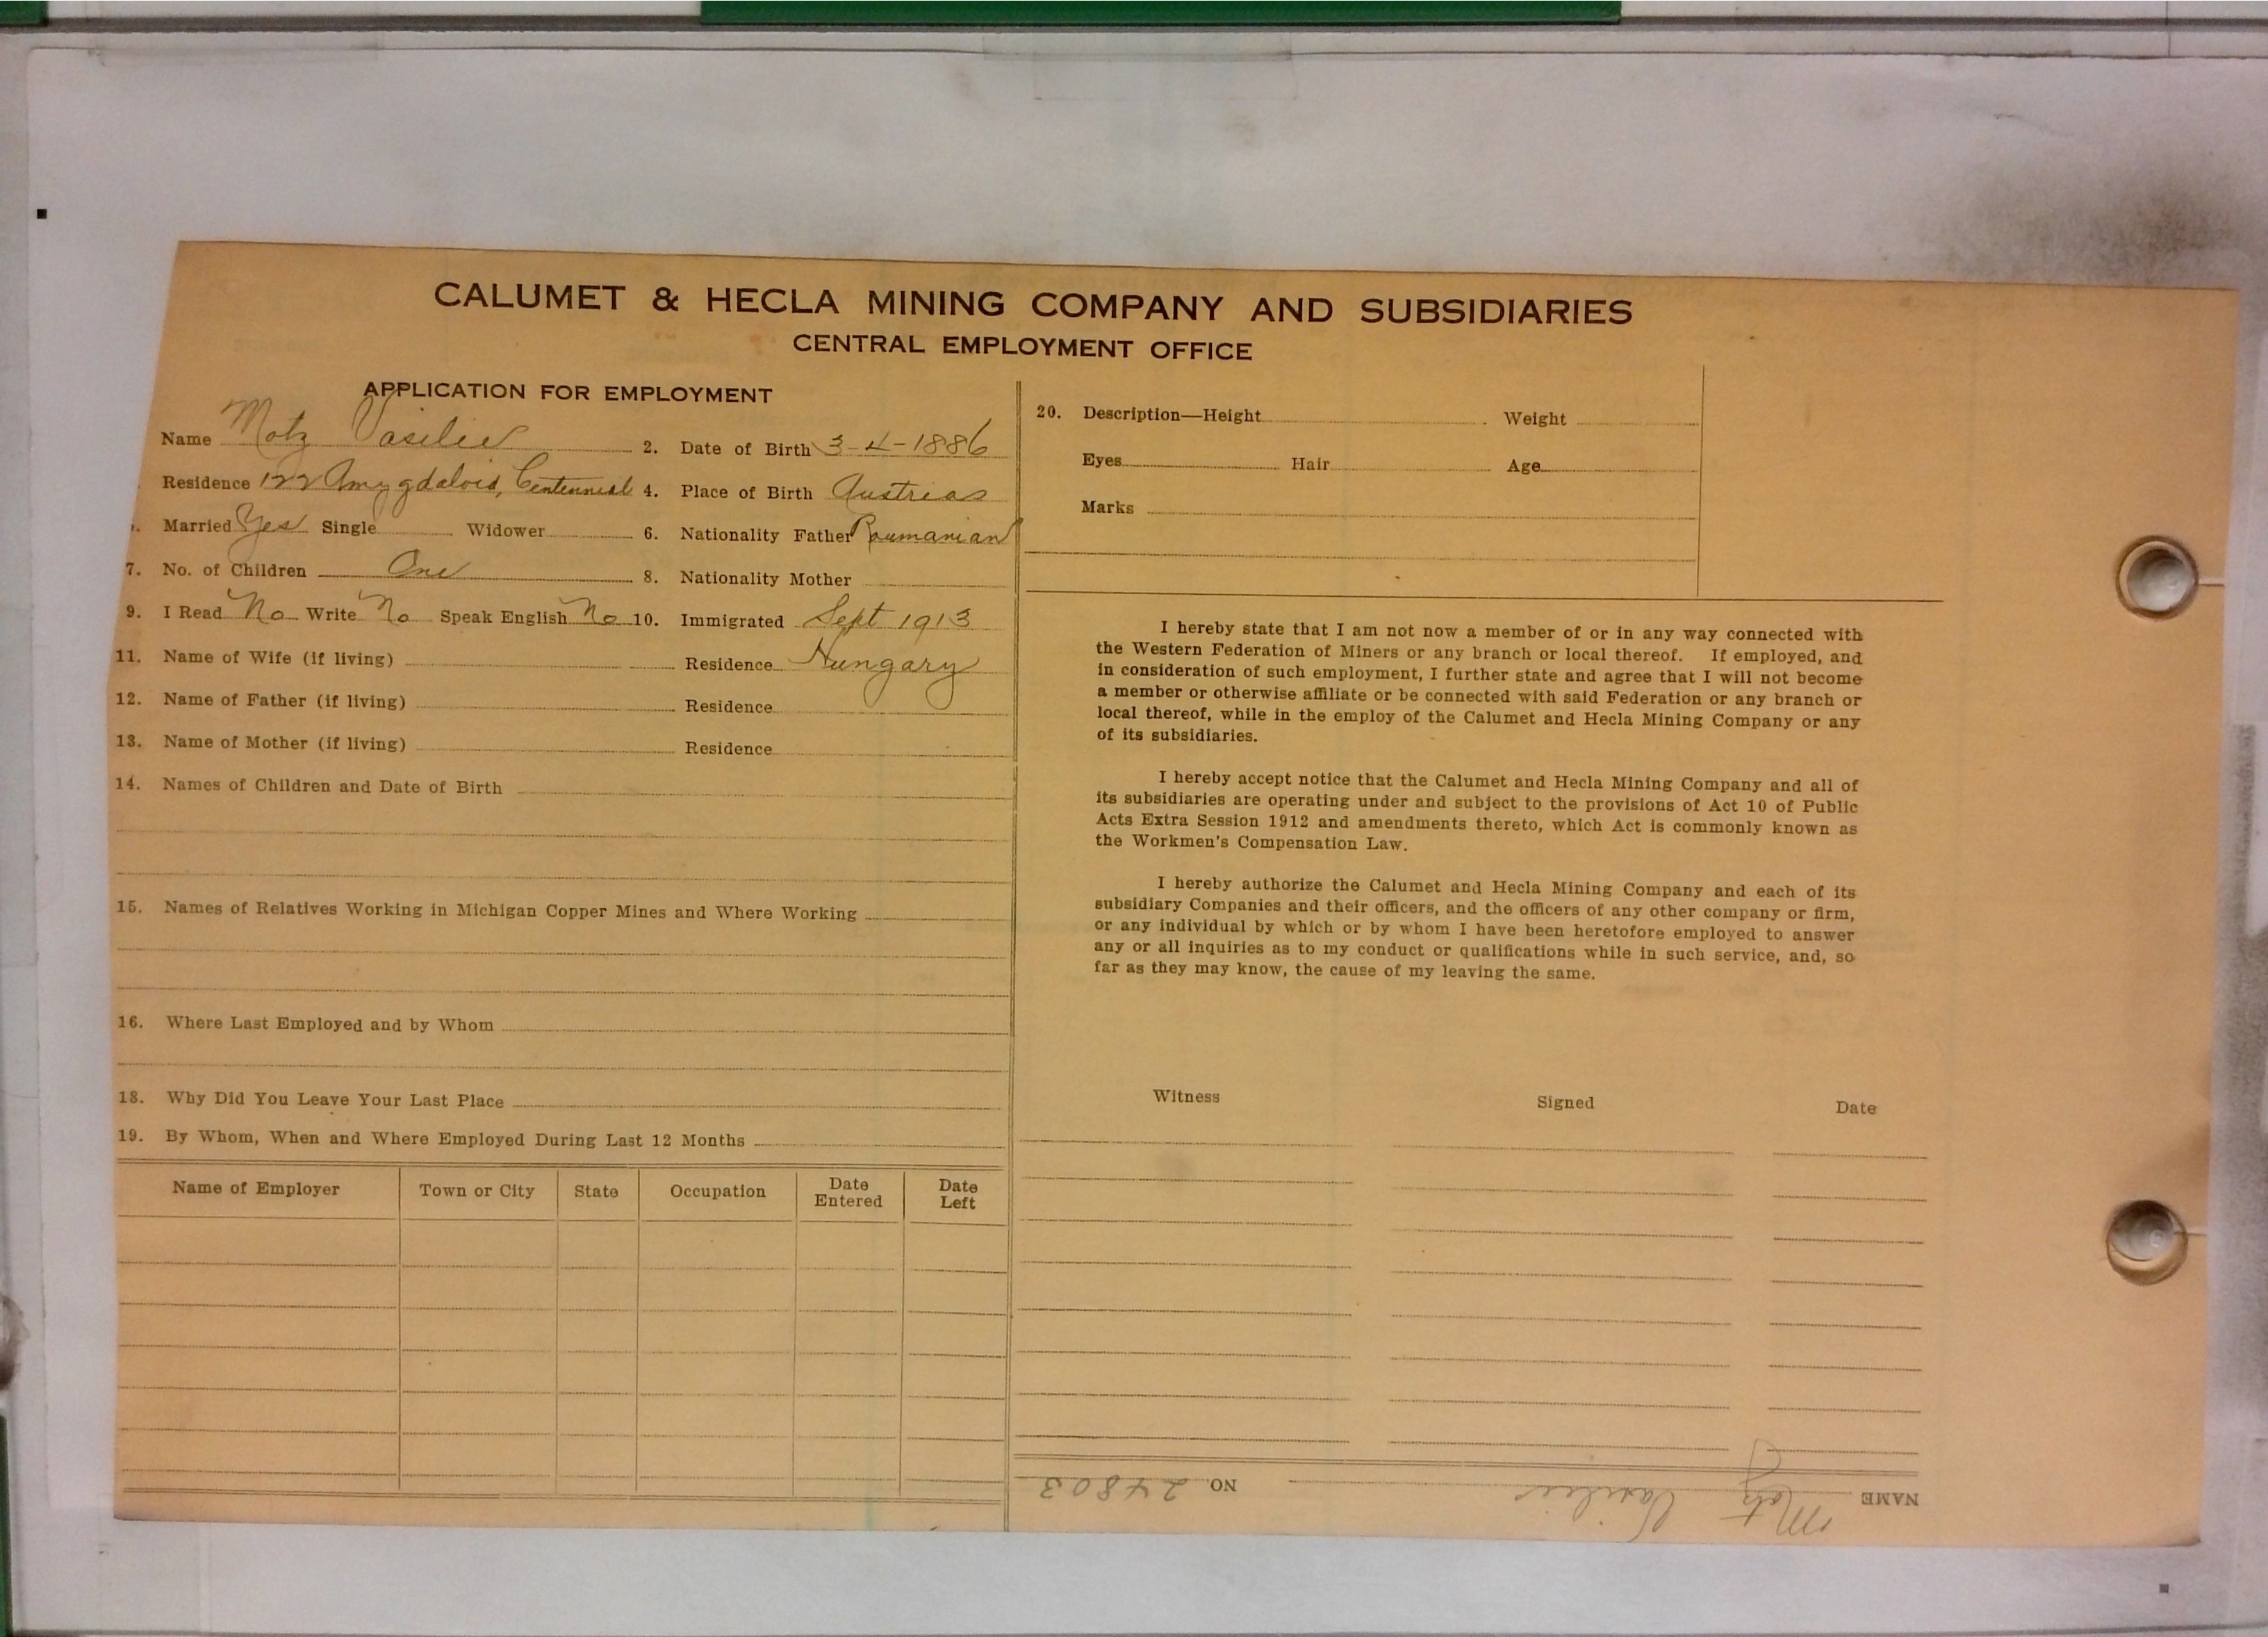 CALUMET & HECLA MINING COMPANY AND SUBSIDIARIES
CENTRAL EMPLOYMENT OFFICE
APPLICATION FOR EMPLOYMENT
Name Motz Vasilie 2. Date of Birth 3-4-1886
Residence 122 Amygdaloid, Centennial 4. Place of Birth Austria
Married Yes Single Widower 6. Nationality Father Roumanian
7. No. of Children One 8. Nationality Mother
9. I Read No Write No Speak English No 10. Immigrated Sept 1913
11. Name of Wife (if living) Residence Hungary
12. Name of Father (if living) Residence
13. Name of Mother (if living) Residence
14. Names of Children and Date of Birth
15. Names of Relatives Working in Michigan Copper Mines and Where Working
16. Where Last Employed and by Whom
18. Why Did You Leave Your Last Place
19. By Whom, When and Where Employed During Last 12 Months
Name of Employer Town or City State Occupation Date Entered Date Left
20. Description—Height Weight
Eyes Hair Age
Marks
I hereby state that I am not now a member of or in any way connected with
the Western Federation of Miners or any branch or local thereof. If employed, and
in consideration of such employment, I further state and agree that I will not become
a member or otherwise affiliate or be connected with said Federation or any branch or
local thereof, while in the employ of the Calumet and Hecla Mining Company or any
of its subsidiaries.
I hereby accept notice that the Calumet and Hecla Mining Company and all of
its subsidiaries are operating under and subject to the provisions of Act 10 of Public
Acts Extra Session 1912 and amendments thereto, which Act is commonly known as
the Workmen's Compensation Law.
I hereby authorize the Calumet and Hecla Mining Company and each of its
subsidiary Companies and their officers, and the officers of any other company or firm,
or any individual by which or by whom I have been heretofore employed to answer
any or all inquiries as to my conduct or qualifications while in such service, and, so
far as they may know, the cause of my leaving the same.
Witness Signed Date
NAME Motz Vasilie NO. 24803